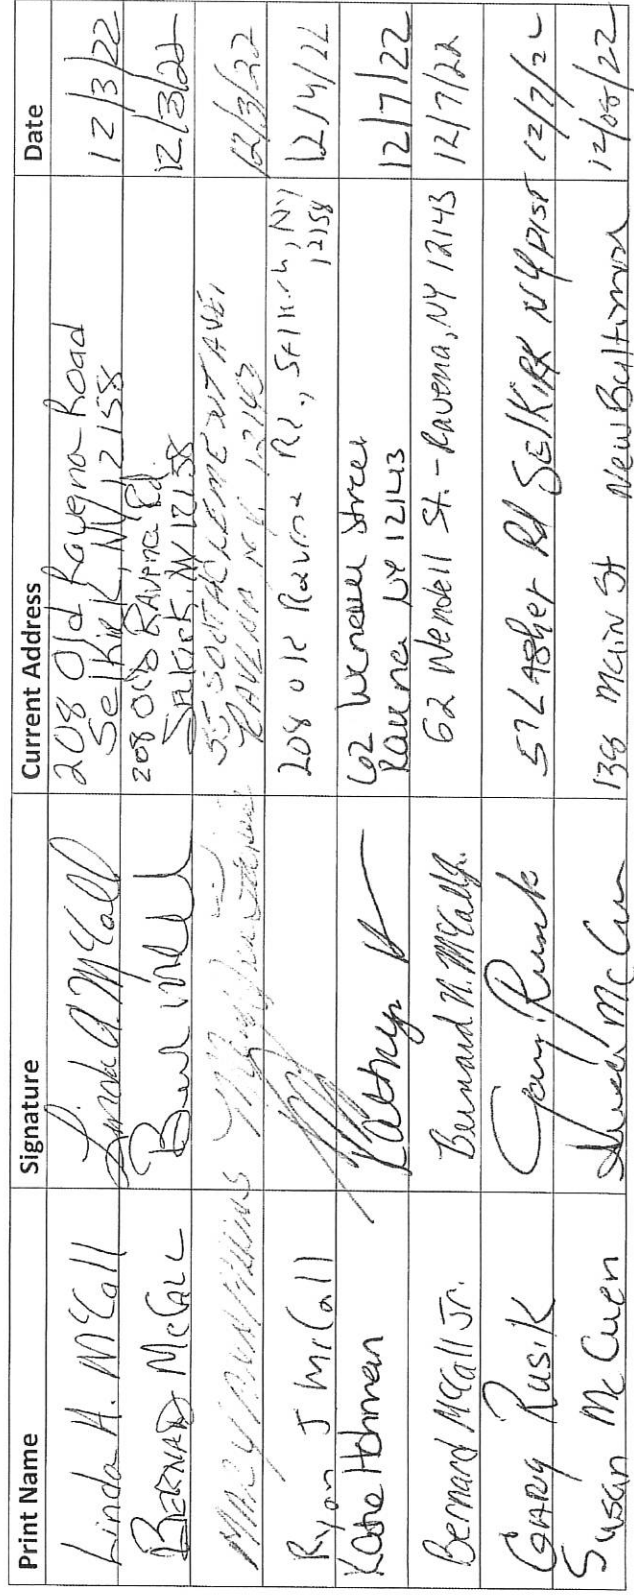 Print Name Signature Current Address Date
Linda A. McCall Linda A. McCall 208 Old Ravena Road
Selkirk, NY 12158 12/3/22
BERNARD McCALL 208 OLD RAVENA Rd
SELKIRK, NY 12158 12/3/22
55 SOUTH CLEMENT AVE,
RAVENA N.Y. 12143 12/3/22
Ryan J McCall 208 Old Ravena Rd., Selkirk, NY
12158 12/4/22
Katie Hohman Kathryn H 62 Wendell Street
Ravena NY 12143 12/7/22
Bernard McCall Jr. Bernard N. McCall Jr. 62 Wendell St. - Ravena, NY 12143 12/7/22
GARY RUSIK Gary Rusik 57 LASHER Rd SELKIRK NY 12/7/22
Susan McCuen Susan McCuen Main St New Baltimore 12/08/22